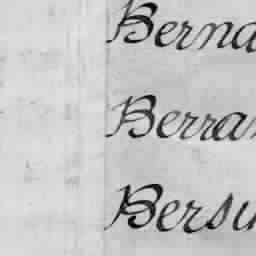 Berna
Berran
Bersu